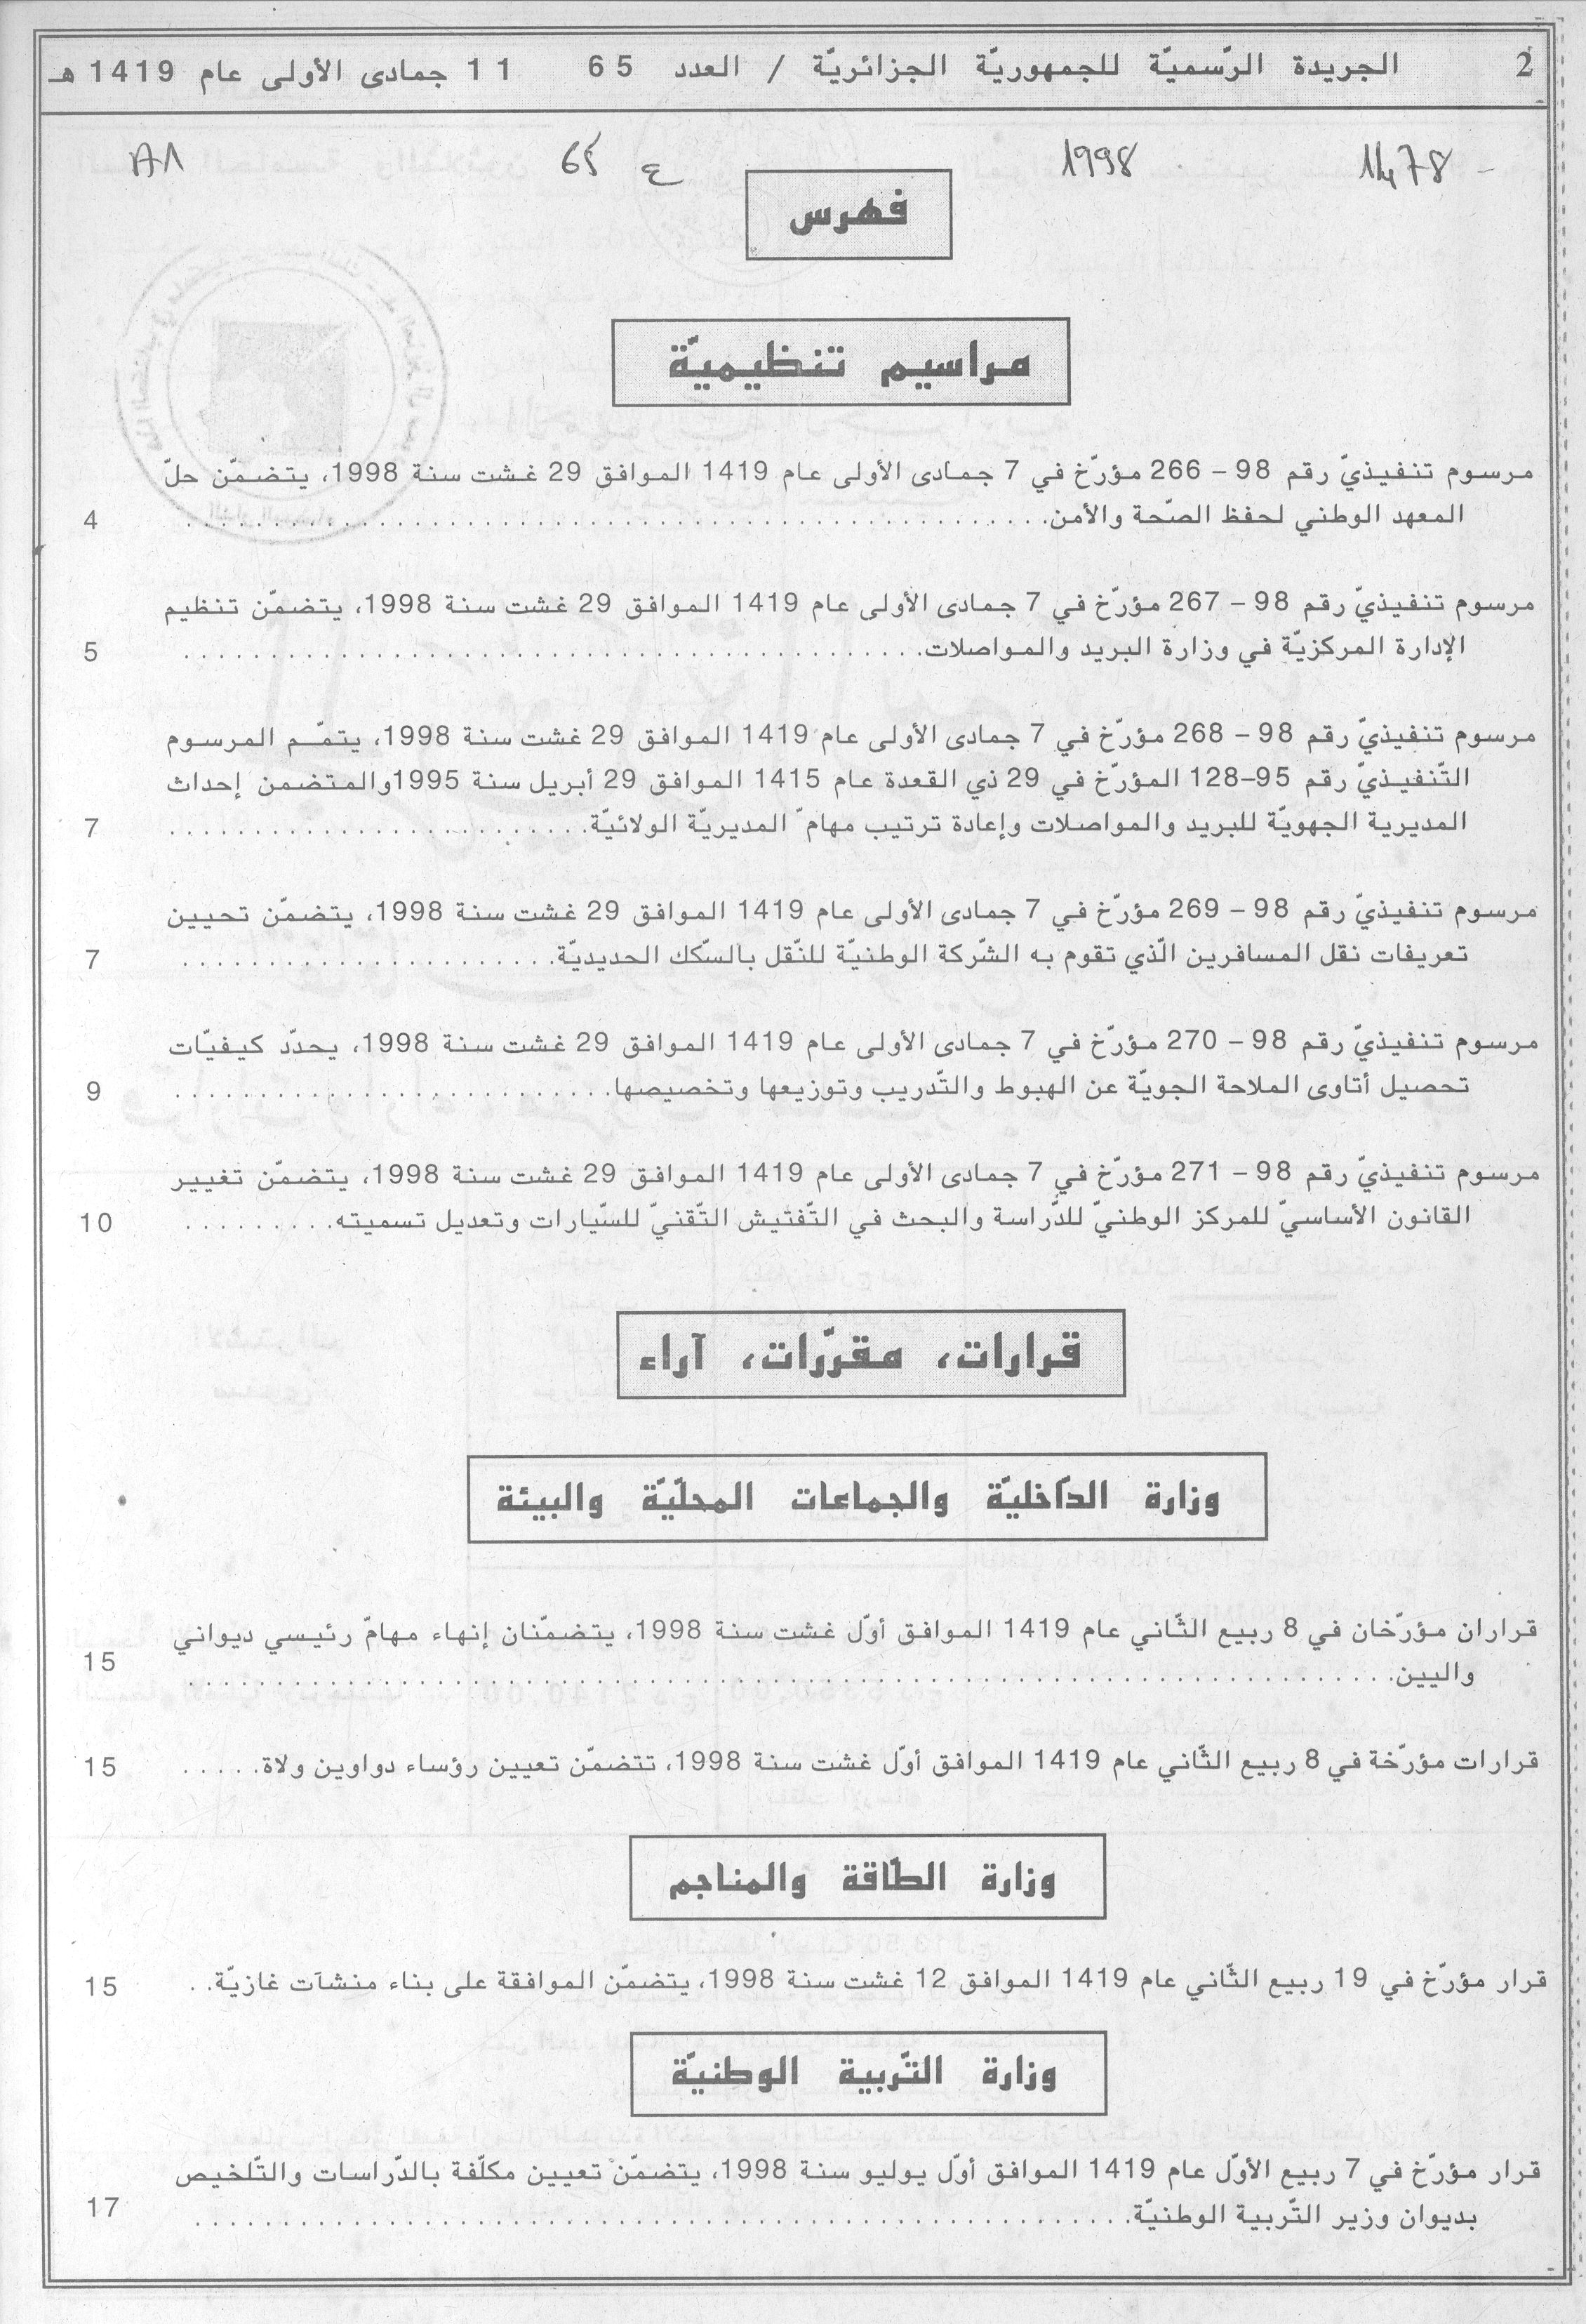 2 الجريدة الرّسميّة للجمهوريّة الجزائريّة / العدد 65 11 جمادى الأولى عام 1419 هـ
1478 1998 ع 65 A1
فهرس
مراسيم تنظيميّة
مرسوم تنفيذيّ رقم 98 – 266 مؤرّخ في 7 جمادى الأولى عام 1419 الموافق 29 غشت سنة 1998، يتضمّن حلّ
المعهد الوطني لحفظ الصّحة والأمن. . . . . . . . . . . . . . . . . . . . 4
مرسوم تنفيذيّ رقم 98 – 267 مؤرّخ في 7 جمادى الأولى عام 1419 الموافق 29 غشت سنة 1998، يتضمّن تنظيم
الإدارة المركزيّة في وزارة البريد والمواصلات. . . . . . . . . . . . . . . . . . . . 5
مرسوم تنفيذيّ رقم 98 – 268 مؤرّخ في 7 جمادى الأولى عام 1419 الموافق 29 غشت سنة 1998، يتمّم المرسوم
التّنفيذيّ رقم 95–128 المؤرّخ في 29 ذي القعدة عام 1415 الموافق 29 أبريل سنة 1995والمتضمن إحداث
المديرية الجهويّة للبريد والمواصلات وإعادة ترتيب مهامّ المديريّة الولائيّة. . . . . . . . . . . . . . . . 7
مرسوم تنفيذيّ رقم 98 – 269 مؤرّخ في 7 جمادى الأولى عام 1419 الموافق 29 غشت سنة 1998، يتضمّن تحيين
تعريفات نقل المسافرين الّذي تقوم به الشّركة الوطنيّة للنّقل بالسّكك الحديديّة. . . . . . . . . . . . . . . . 7
مرسوم تنفيذيّ رقم 98 – 270 مؤرّخ في 7 جمادى الأولى عام 1419 الموافق 29 غشت سنة 1998، يحدّد كيفيّات
تحصيل أتاوى الملاحة الجويّة عن الهبوط والتّدريب وتوزيعها وتخصيصها. . . . . . . . . . . . . . . . 9
مرسوم تنفيذيّ رقم 98 – 271 مؤرّخ في 7 جمادى الأولى عام 1419 الموافق 29 غشت سنة 1998، يتضمّن تغيير
القانون الأساسيّ للمركز الوطنيّ للدّراسة والبحث في التّفتيش التّقنيّ للسّيارات وتعديل تسميته. . . . . . . . . . 10
قرارات، مقرّرات، آراء
وزارة الدّاخليّة والجماعات المحلّيّة والبيئة
قراران مؤرّخان في 8 ربيع الثّاني عام 1419 الموافق أوّل غشت سنة 1998، يتضمّنان إنهاء مهامّ رئيسي ديواني
واليين. . . . . . . . . . . . . . . . . . . . 15
قرارات مؤرّخة في 8 ربيع الثّاني عام 1419 الموافق أوّل غشت سنة 1998، تتضمّن تعيين رؤساء دواوين ولاة. . . . . . 15
وزارة الطّاقة والمناجم
قرار مؤرّخ في 19 ربيع الثّاني عام 1419 الموافق 12 غشت سنة 1998، يتضمّن الموافقة على بناء منشآت غازيّة. . 15
وزارة التّربية الوطنيّة
قرار مؤرّخ في 7 ربيع الأوّل عام 1419 الموافق أوّل يوليو سنة 1998، يتضمّن تعيين مكلّفة بالدّراسات والتّلخيص
بديوان وزير التّربية الوطنيّة. . . . . . . . . . . . . . . . . . . . 17